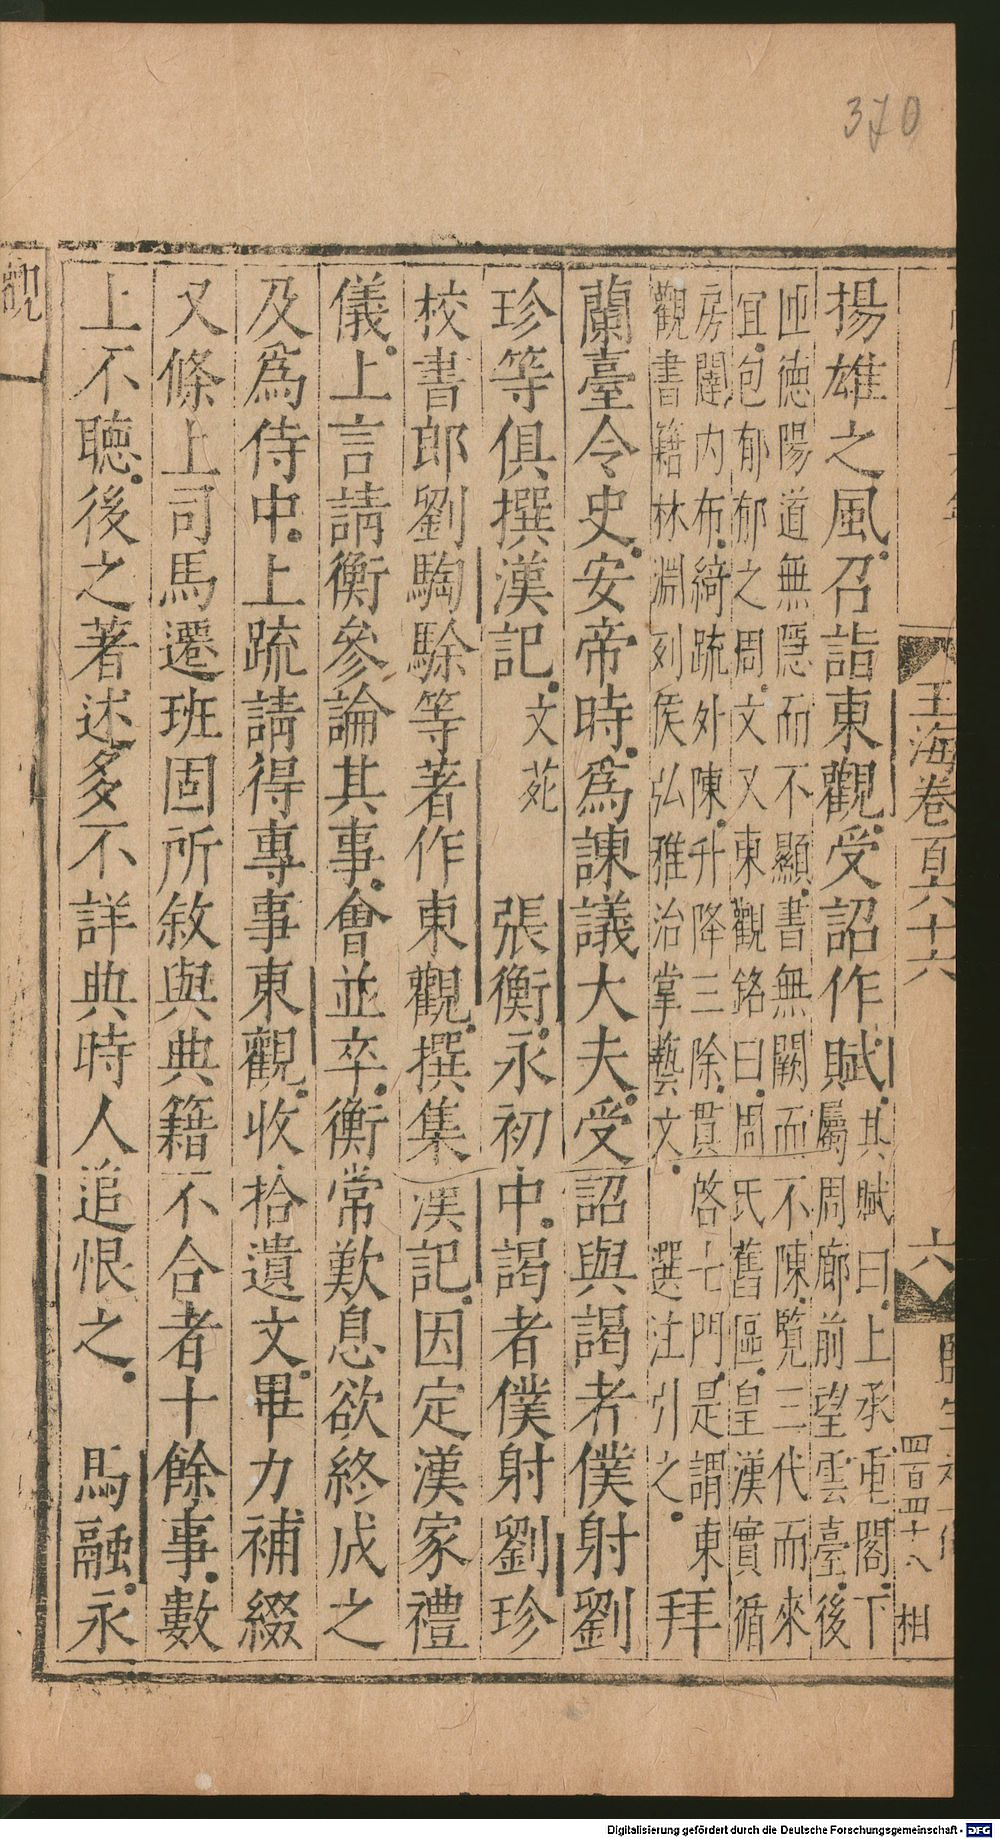 370
玉海卷百六十六
六
四百四十八
相
揚雄之風召詣東觀受詔作賦其賦曰上承重閣下
屬周廊前望雲臺後
匝德陽道無隱而不顯書無闕而不陳覽三代而來
宜包郁郁之周文又東觀銘曰周氏舊區皇漢實循
房闥内布綺疏外陳升降三除貫啓七門是謂東
觀書籍林淵列侯弘雅治掌藝文選注引之拜
蘭臺令史安帝時爲諫議大夫受詔與謁者僕射劉
珍等俱撰漢記文苑張衡永初中謁者僕射劉珍
校書郎劉騊駼等著作東觀撰集漢記因定漢家禮
儀上言請衡參論其事會並卒衡常歎息欲終成之
及爲侍中上疏請得專事東觀收拾遺文畢力補綴
又條上司馬遷班固所敘與典籍不合者十餘事數
上不聽後之著述多不詳典時人追恨之馬融永
觀
Digitalisierung gefördert durch die Deutsche Forschungsgemeinschaft - DFG